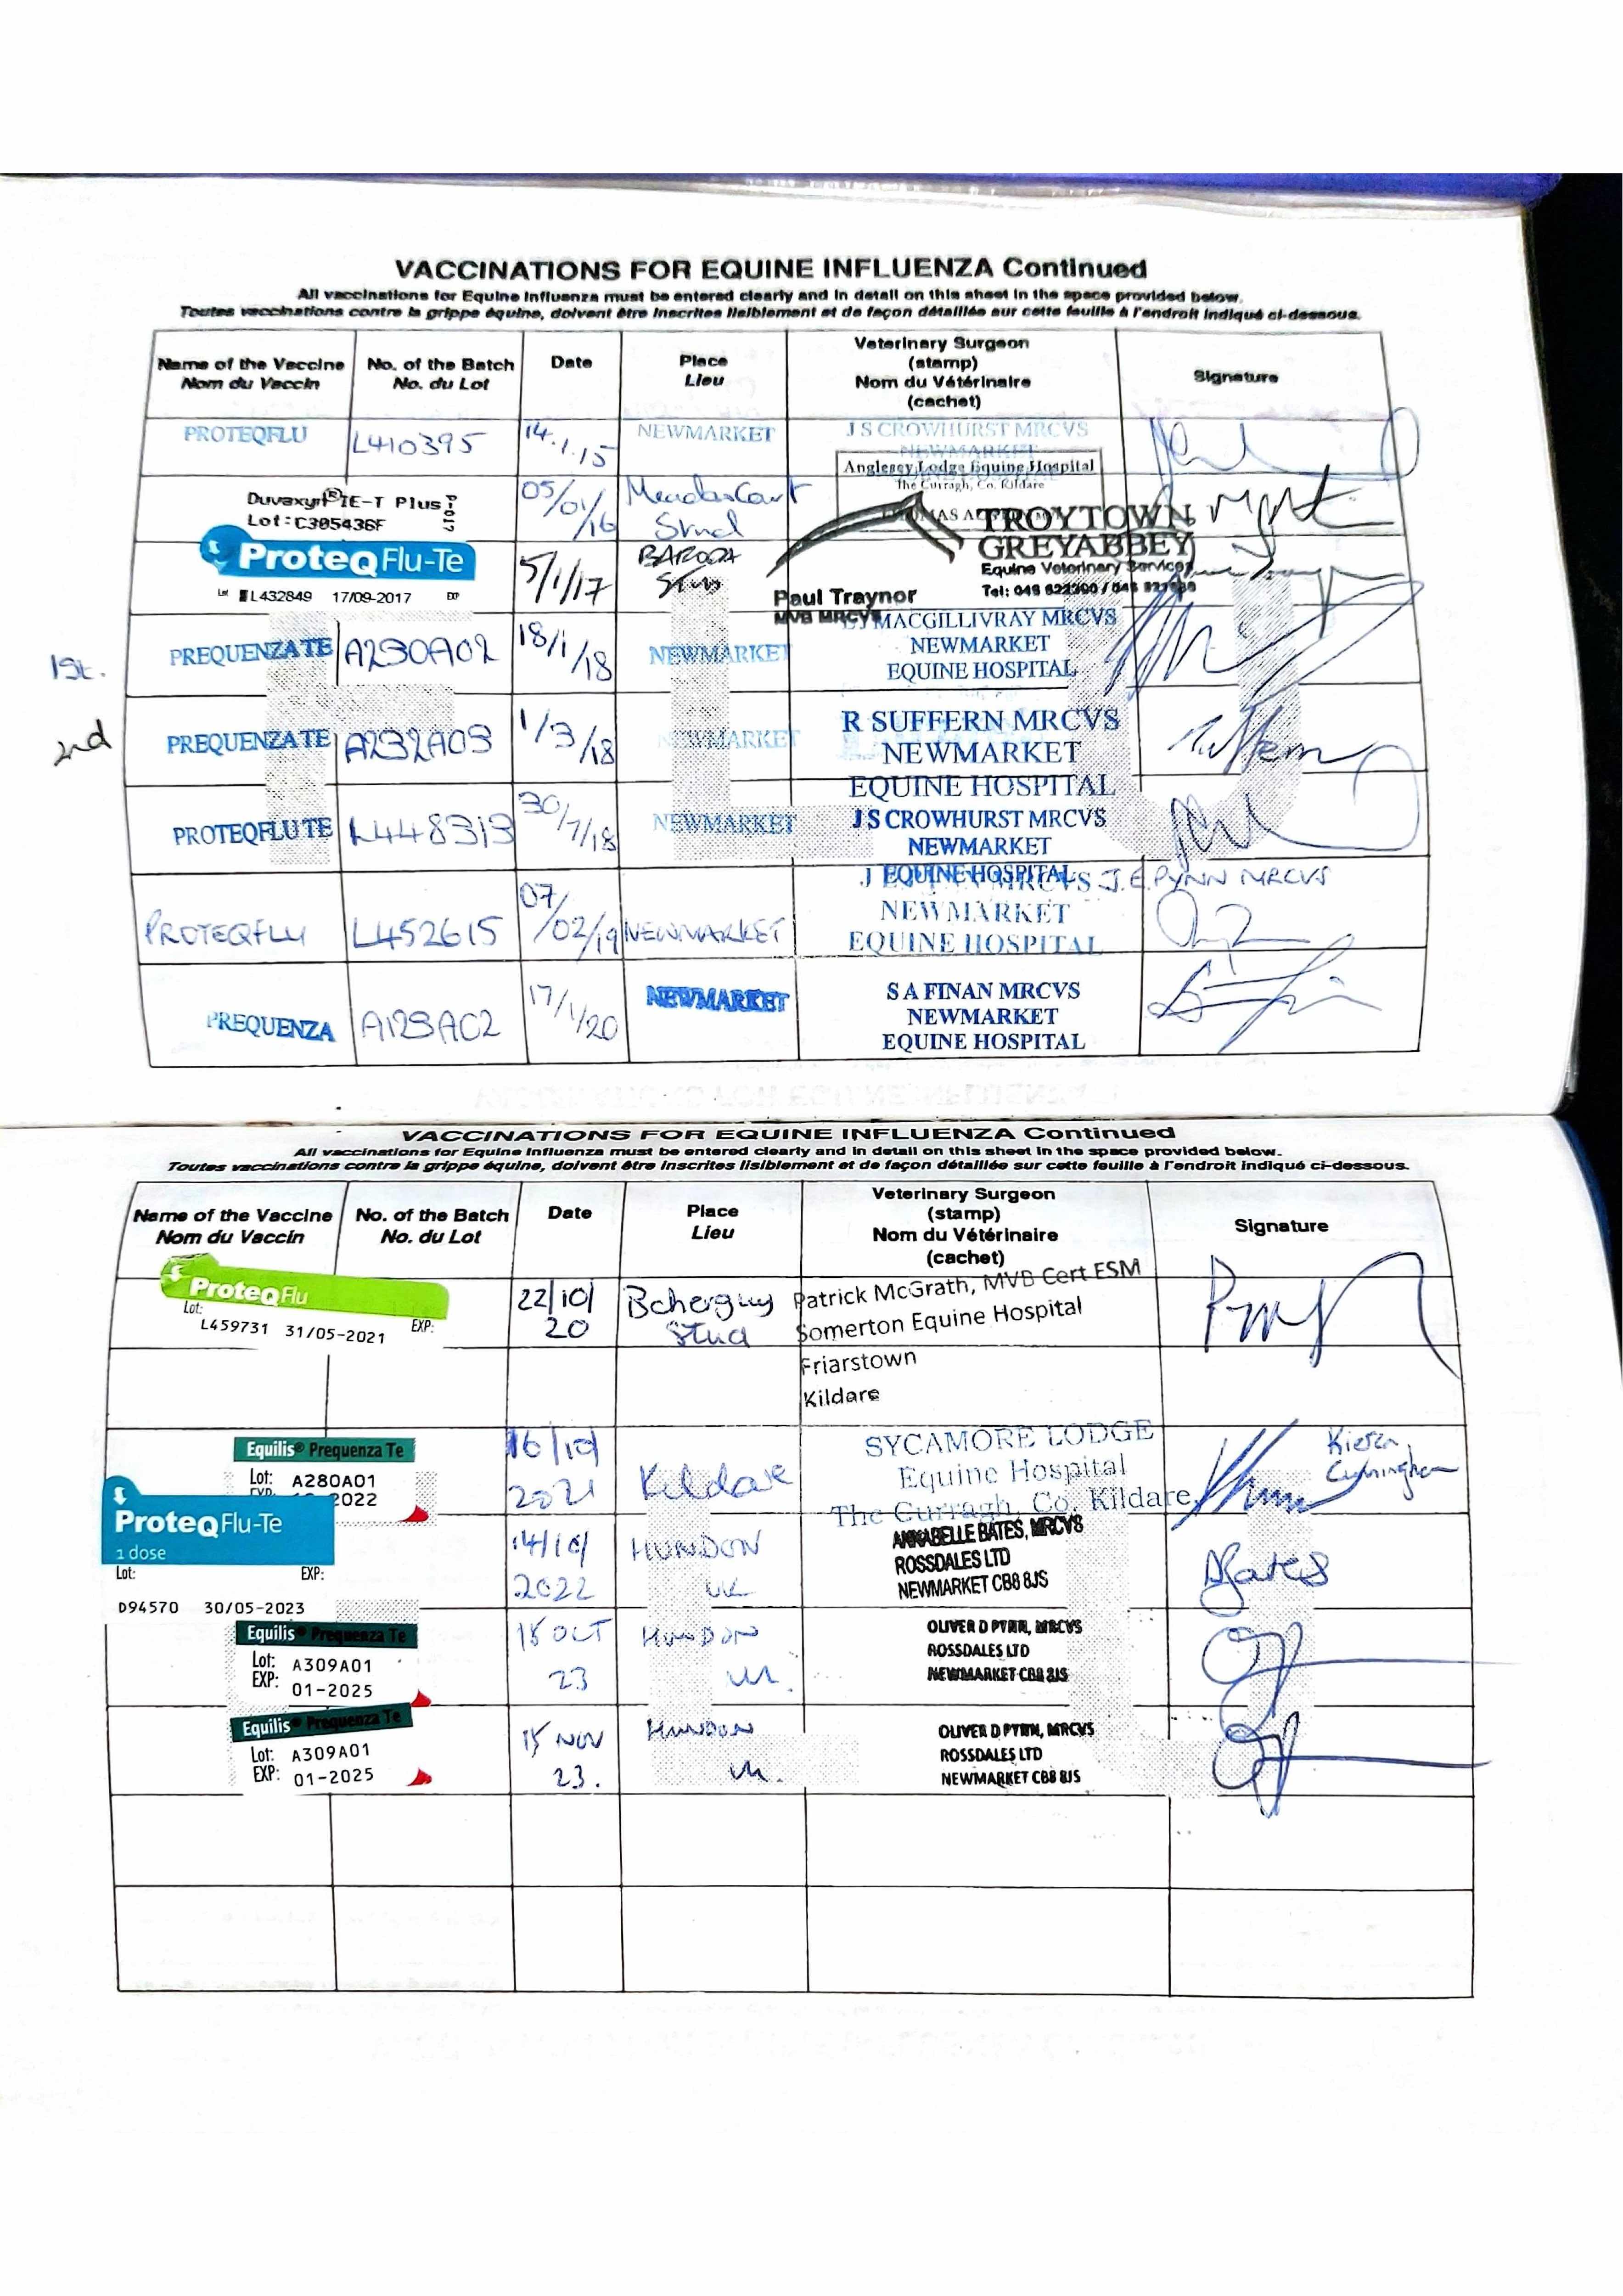 VACCINATIONS FOR EQUINE INFLUENZA Continued
All vaccinations for Equine Influenza must be entered clearly and in detail on this sheet in the space provided below.
Toutes vaccinations contre la grippe équine, doivent être inscrites lisiblement et de façon détaillée sur cette feuille à l'endroit indiqué ci-dessous.
Name of the Vaccine
Nom du Vaccin
No. of the Batch
No. du Lot
Date
Place
Lieu
Veterinary Surgeon
(stamp)
Nom du Vétérinaire
(cachet)
Signature
PROTEQFLU
L410395
14.1.15
NEWMARKET
J S CROWHURST MRCVS
NEWMARKET
Duvaxyn® IE-T Plus
Lot: C305436F
05/01/16
Stud
Anglesey Lodge Equine Hospital
The Curragh, Co. Kildare
ProteqFlu-Te
Lot L432849 17/09-2017 EXP
5/1/17
BARODA
Stud
TROYTOWN
GREYABBEY
Equine Veterinary Services
Paul Traynor
MVB MRCVS
1st.
PREQUENZA TE
A230A02
18/1/18
NEWMARKET
MACGILLIVRAY MRCVS
NEWMARKET
EQUINE HOSPITAL
2nd
PREQUENZA TE
A232A03
1/3/18
NEWMARKET
R SUFFERN MRCVS
NEWMARKET
EQUINE HOSPITAL
PROTEQFLU TE
L448313
30/7/18
NEWMARKET
J S CROWHURST MRCVS
NEWMARKET
EQUINE HOSPITAL
PROTEQFLU
L452615
07/02/19
NEWMARKET
J.E. PYNN MRCVS
NEWMARKET
EQUINE HOSPITAL
PREQUENZA
A123A02
17/1/20
NEWMARKET
S A FINAN MRCVS
NEWMARKET
EQUINE HOSPITAL
VACCINATIONS FOR EQUINE INFLUENZA Continued
All vaccinations for Equine Influenza must be entered clearly and in detail on this sheet in the space provided below.
Toutes vaccinations contre la grippe équine, doivent être inscrites lisiblement et de façon détaillée sur cette feuille à l'endroit indiqué ci-dessous.
Name of the Vaccine
Nom du Vaccin
No. of the Batch
No. du Lot
Date
Place
Lieu
Veterinary Surgeon
(stamp)
Nom du Vétérinaire
(cachet)
Signature
ProteqFlu
Lot: EXP:
L459731 31/05-2021
22/10/
20
Stud
Patrick McGrath, MVB Cert ESM
Somerton Equine Hospital
Friarstown
Kildare
Equilis® Prequenza Te
Lot: A280A01
2022
16/10/
2021
Kildare
SYCAMORE LODGE
Equine Hospital
The Curragh, Co. Kildare
Kieran
Cunningham
ProteqFlu-Te
1 dose
Lot: EXP:
D94570 30/05-2023
14/10/
2022
HUNDON
UK
ANNABELLE BATES, MRCVS
ROSSDALES LTD
NEWMARKET CB8 8JS
ABates
Equilis® Prequenza Te
Lot: A309A01
EXP: 01-2025
15 OCT
23
HUNDON
UK.
OLIVER D PYNN, MRCVS
ROSSDALES LTD
NEWMARKET CB8 8JS
Equilis® Prequenza Te
Lot: A309A01
EXP: 01-2025
15 NOV
23.
HUNDON
UK.
OLIVER D PYNN, MRCVS
ROSSDALES LTD
NEWMARKET CB8 8JS